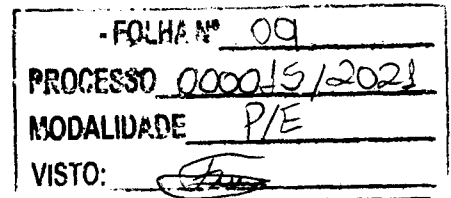 - FOLHA Nº 09
PROCESSO 000015/2021
MODALIDADE P/E
VISTO: